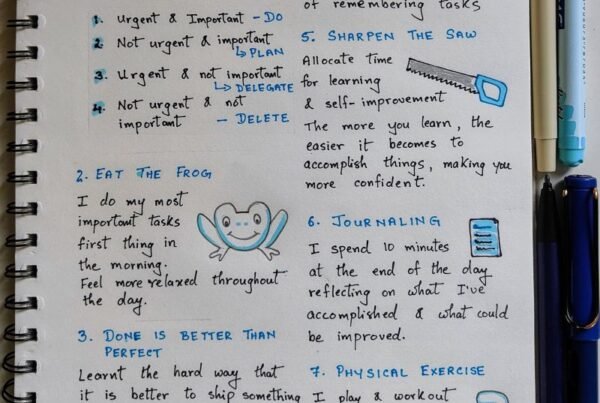 1. Urgent & Important - DO
2. Not urgent & important
↳ PLAN
3. Urgent & not important
↳ DELEGATE
4. Not urgent & not
important - DELETE
2. EAT THE FROG
I do my most
important tasks
first thing in
the morning.
Feel more relaxed throughout
the day.
3. DONE IS BETTER THAN
PERFECT
Learnt the hard way that
it is better to ship something
of remembering tasks
5. SHARPEN THE SAW
Allocate time
for learning
& self-improvement
The more you learn, the
easier it becomes to
accomplish things, making you
more confident.
6. JOURNALING
I spend 10 minutes
at the end of the day
reflecting on what I've
accomplished & what could
be improved.
7. PHYSICAL EXERCISE
I play & workout